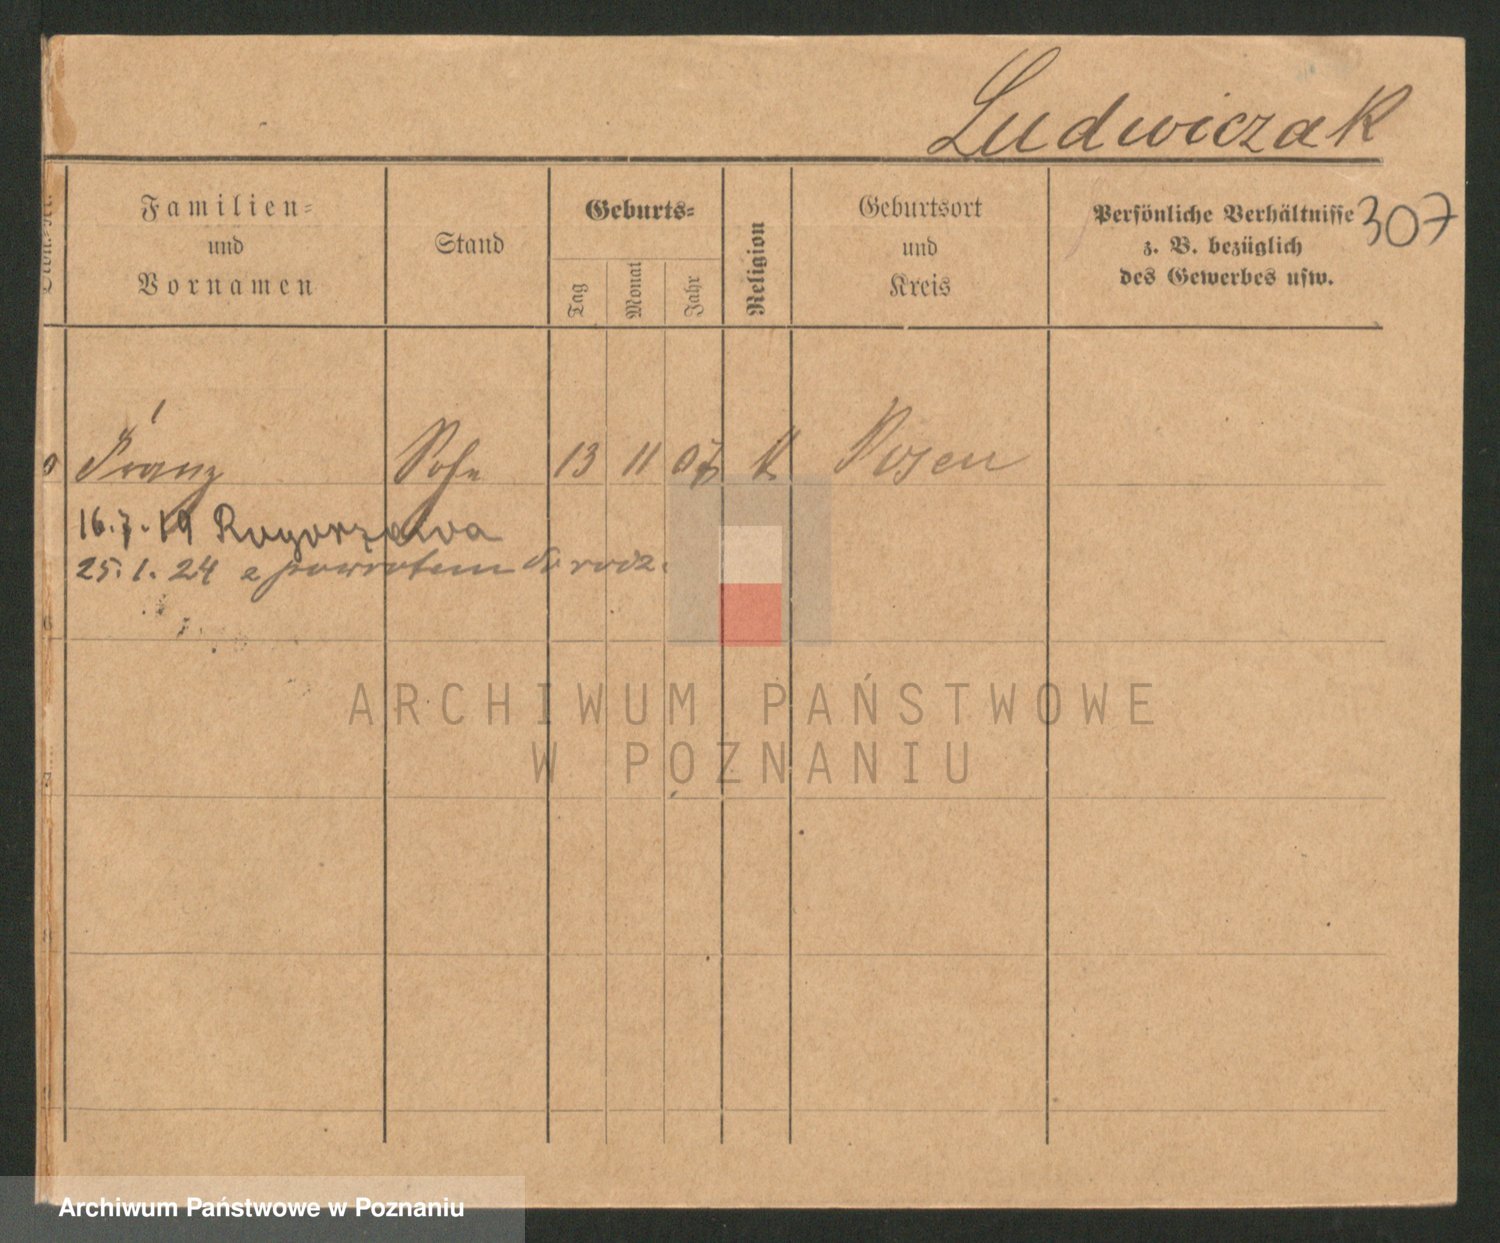 Ludwiczak
307
Familien-
und
Vornamen
Stand
Geburts-
Tag
Monat
Jahr
Religion
Geburtsort
und
Kreis
Persönliche Verhältnisse
z. B. bezüglich
des Gewerbes usw.
Franz Sohn 13 11 07 k Posen
16.7.19
25.1.24 z powrotem do rodz.
ARCHIWUM PAŃSTWOWE
W POZNANIU
Archiwum Państwowe w Poznaniu